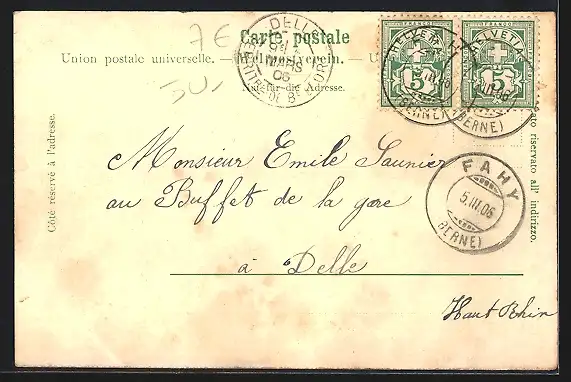 7E
Carte postale
Union postale universelle. — Weltpostverein. — U
Nur für die Adresse.
Côté réservé à l'adresse.
ato riservato all' indirizzo.
DELLE
MARS
06
HELVETIA
HELVETIA
FRANCO
FRANCO
5
5
(BERNE)
(BERNE)
Monsieur Emile Saunier
au Buffet de la gare
à Delle
Haut Rhin
FAHY
5.III.06
(BERNE)